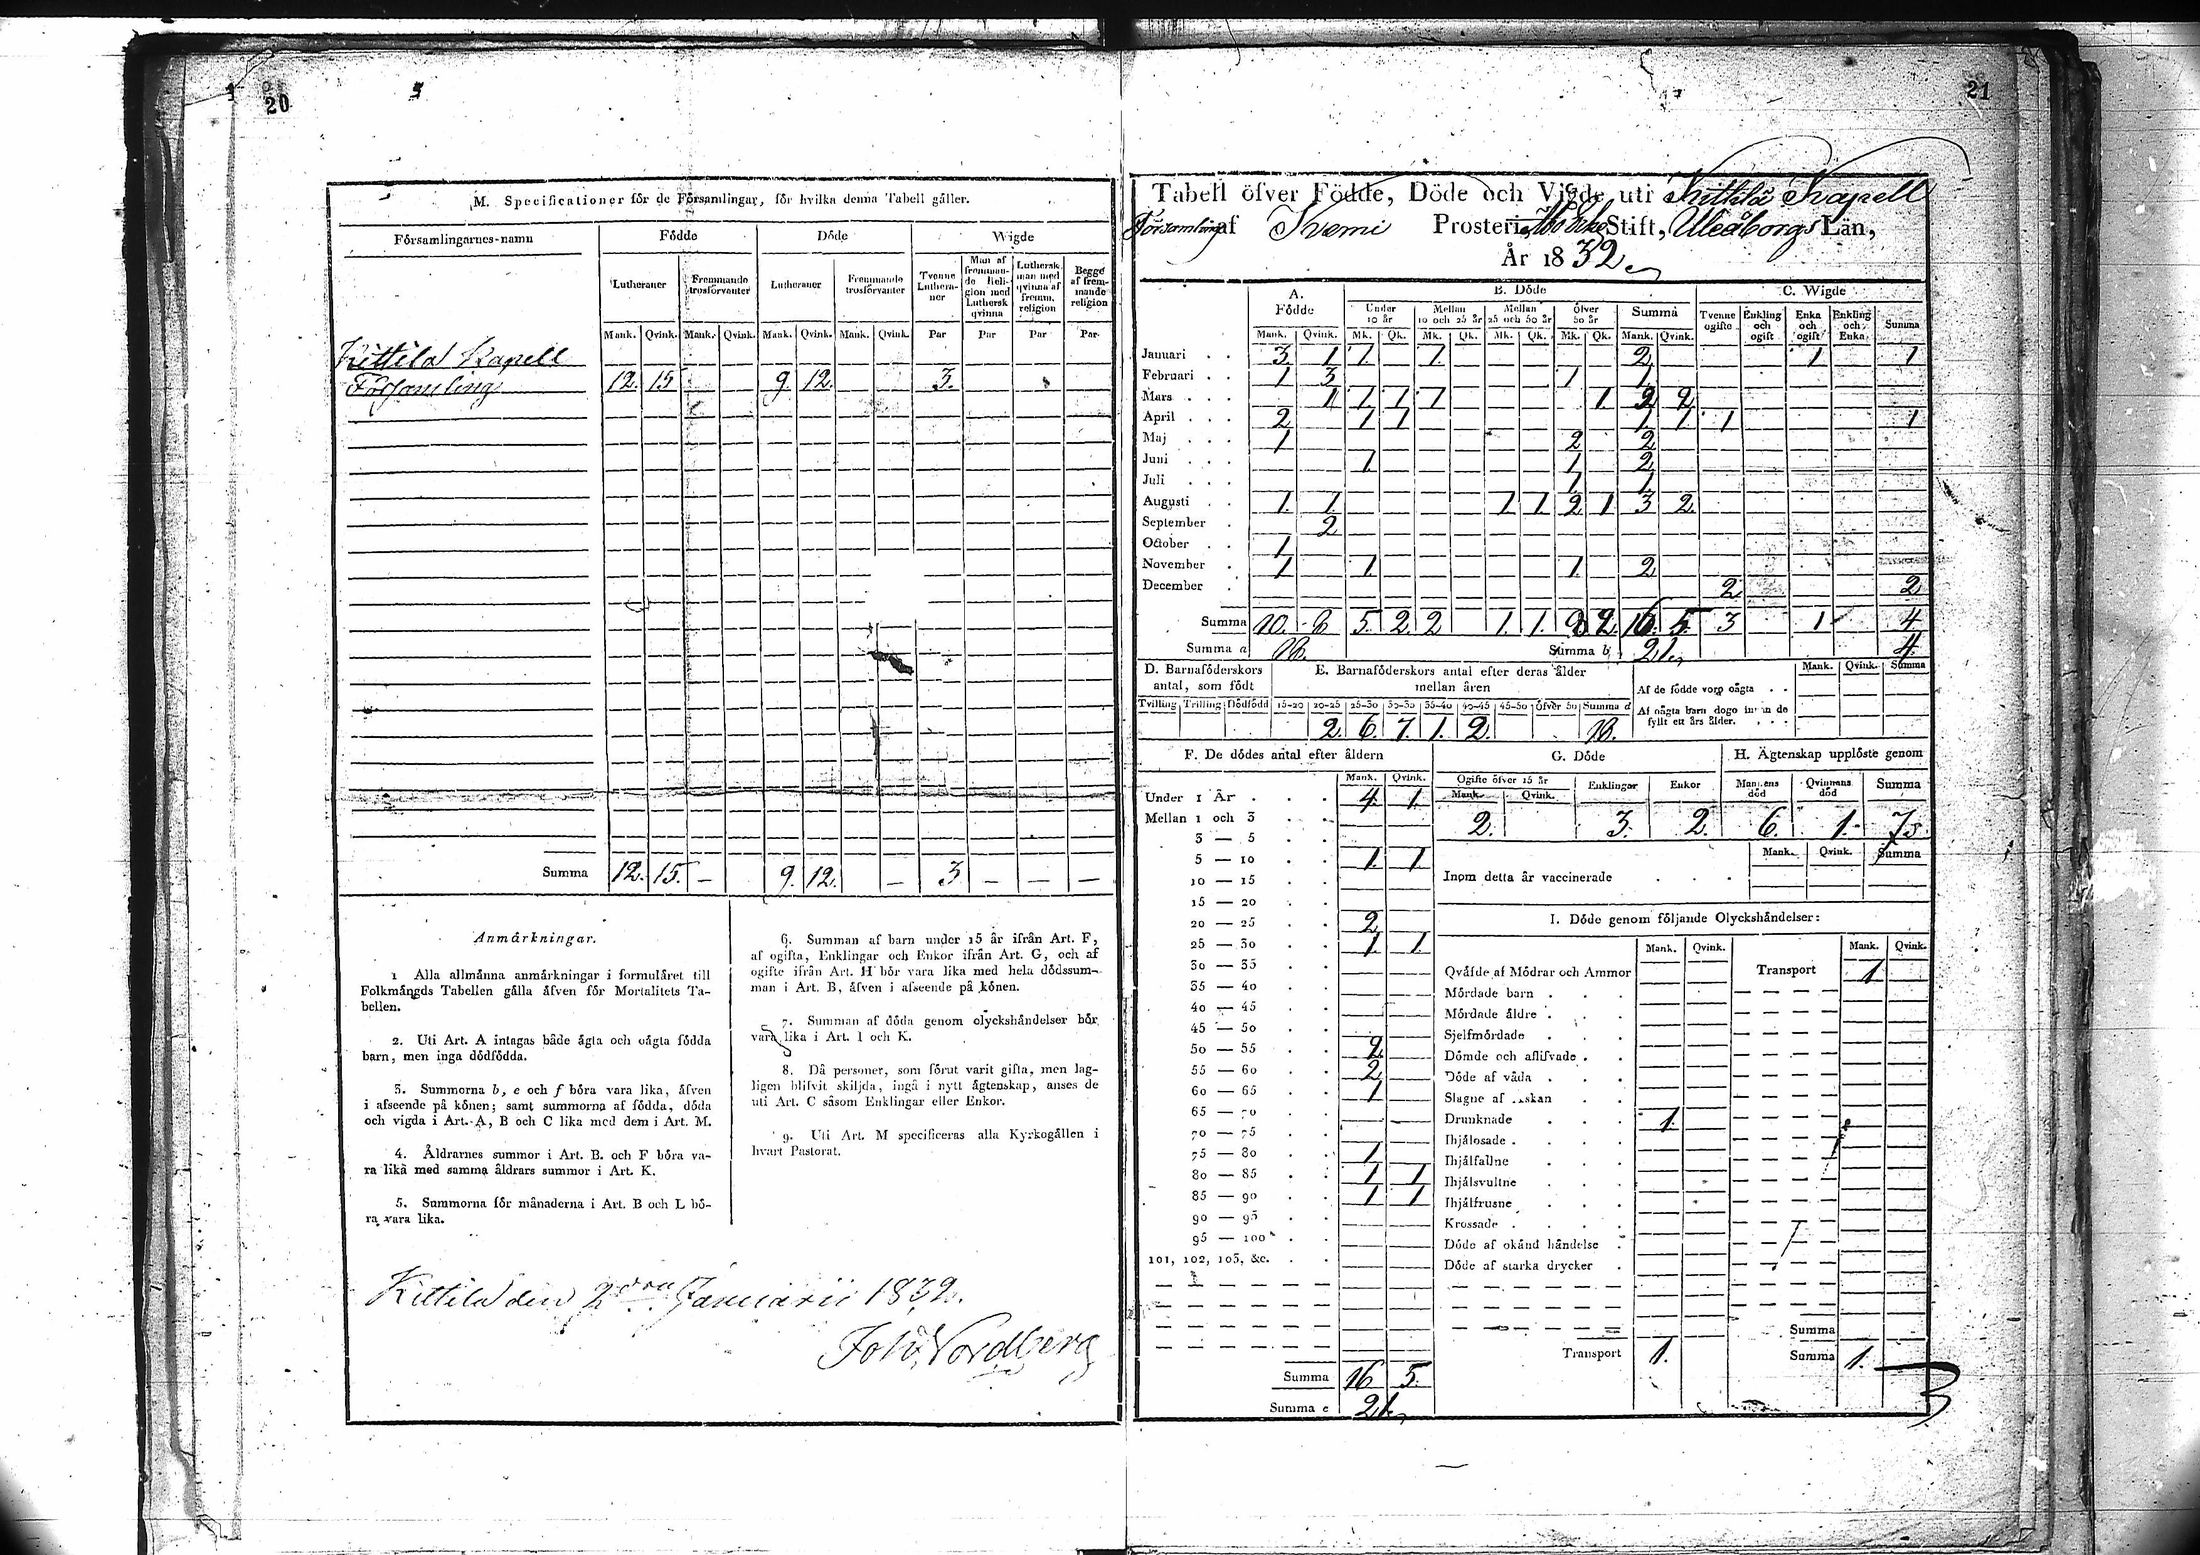 20
M. Specificationer för de Församlingar, för hvilka denna Tabell gäller.
Församlingarnes-namn Födde Döde Wigde
Lutheraner Fremmande trosförvanter Lutheraner Fremmande trosförvanter Tvenne Lutheraner Man af fremmande Religion med Luthersk qvinna Luthersk man med qvinna af fremm. religion Begge af fremmande religion
Mank. Qvink. Mank. Qvink. Mank. Qvink. Mank. Qvink. Par Par Par Par
Kittilä Kapell
Församling 12. 15 9. 12. 3.
Summa 12. 15. – 9. 12. – 3 – – –
Anmärkningar.
1 Alla allmänna anmärkningar i formuläret till
Folkmängds Tabellen gälla äfven för Mortalitets Ta-
bellen.
2. Uti Art. A intagas både ägta och oägta födda
barn, men inga dödfödda.
3. Summorna b, e och f böra vara lika, äfven
i afseende på könen; samt summorna af födda, döda
och vigda i Art. A, B och C lika med dem i Art. M.
4. Åldrarnes summor i Art. B. och F böra va-
ra lika med samma åldrars summor i Art. K.
5. Summorna för månaderna i Art. B och L bö-
ra vara lika.
6. Summan af barn under 15 år ifrån Art. F,
af ogifta, Enklingar och Enkor ifrån Art. G, och af
ogifte ifrån Art. H bör vara lika med hela dödssum-
man i Art. B, äfven i afseende på könen.
7. Summan af döda genom olyckshändelser bör
vara lika i Art. I och K.
8. Då personer, som förut varit gifta, men lag-
ligen blifvit skiljda, ingå i nytt ägtenskap, anses de
uti Art. C såsom Enklingar eller Enkor.
9. Uti Art. M specificeras alla Kyrkogällen i
hvart Pastorat.
Kittilä den 2dra Januarii 1832.
Joh. Nordberg
21
Tabell öfver Födde, Döde och Vigde uti Kittilä Kapell
Församling af Kemi Prosteri, Stift, Uleåborgs Län,
År 1832.
A. Födde B. Döde C. Wigde
Under 10 år Mellan 10 och 25 år Mellan 25 och 50 år Öfver 50 år Summa Tvenne ogifte Enkling och ogift Enka och ogift Enkling och Enka Summa
Mank. Qvink. Mk. Qk. Mk. Qk. Mk. Qk. Mk. Qk. Mank. Qvink.
Januari 3 1 1 1. 2 1 1
Februari 1 3 1 1
Mars 1 1 1 1 1. 2 2
April 2 1 1 1 1 1 1
Maj 1 2 2
Juni 1. 1 2
Juli 1 1
Augusti 1. 1. 1 1. 2 1 3 2.
September 2
October 1
November 1 1. 1. 2
December 2 2
Summa 10. 8 5. 2. 2 1. 1. 8 2. 16. 5. 3 1 4
Summa a 18. Summa b 21. 4.
D. Barnaföderskors antal, som födt
E. Barnaföderskors antal efter deras ålder mellan åren
Mank. Qvink. Summa
Tvilling Trilling Dödfödd 15-20 20-25 25-30 30-35 35-40 40-45 45-50 Öfver 50 Summa d
2. 6. 7. 1. 2. 18.
Af de födde voro oägta
Af oägta barn dogo innan de fyllt ett års ålder.
F. De dödes antal efter åldern
Mank. Qvink.
Under 1 År 4. 1.
Mellan 1 och 3
3 — 5
5 — 10 1. 1
10 — 15
15 — 20
20 — 25 2
25 — 30 1. 1.
30 — 35
35 — 40
40 — 45
45 — 50
50 — 55 2
55 — 60 2
60 — 65 1
65 — 70
70 — 75
75 — 80 1
80 — 85 1 1
85 — 90 1 1
90 — 95
95 — 100
101, 102, 103, &c.
Summa 16 5.
Summa e 21.
G. Döde
Ogifte öfver 15 år Enklingar Enkor
Mank. Qvink.
2. 3. 2.
H. Ägtenskap upplöste genom
Mannens död Qvinnans död Summa
6. 1. 7
Mank. Qvink. Summa
Inom detta år vaccinerade
I. Döde genom följande Olyckshändelser:
Mank. Qvink. Mank. Qvink.
Qväfde af Mödrar och Ammor Transport 1
Mördade barn
Mördade äldre
Sjelfmördade
Dömde och aflifvade
Döde af våda
Slagne af åskan
Drunknade 1.
Ihjälosade
Ihjälfallne
Ihjälsvultne
Ihjälfrusne
Krossade
Döde af okänd händelse
Döde af starka drycker
Summa
Transport 1. Summa 1.
3